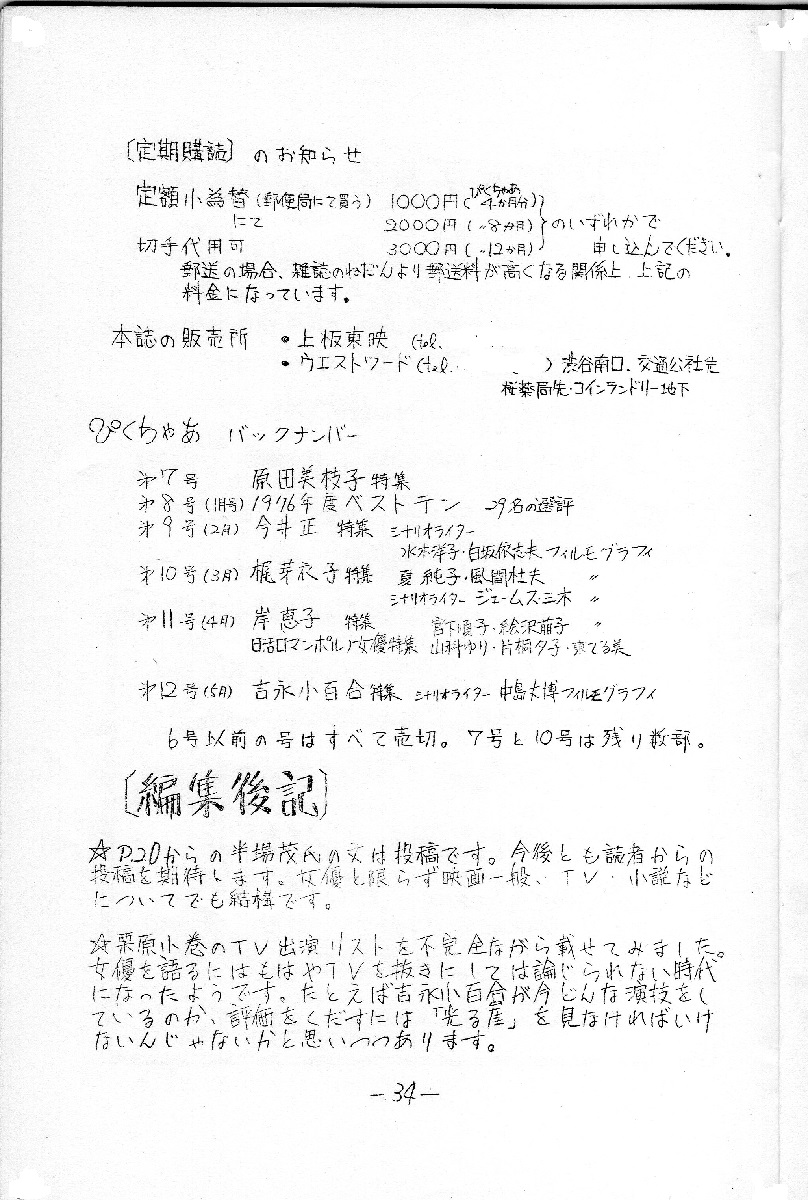 〔定期購誌〕のお知らせ
定額小為替(郵便局にて買う) 1000円(ぴくちゃあ4か月分)
にて 2000円(〃8か月) のいずれかで
切手代用可 3000円(〃12か月) 申し込んでください。
郵送の場合、雑誌のねだんより郵送料が高くなる関係上、上記の
料金になっています。
本誌の販売所 ・上板東映 (tel.
・ウエストワード(tel. ) 渋谷南口、交通公社先
桜薬局先・コインランドリー地下
ぴくちゃあ バックナンバー
第7号 原田美枝子特集
第8号(1月号)1976年度ベストテン 29名の選評
第9号(2月) 今井正 特集 シナリオライター
水木洋子・白坂依志夫フィルモグラフィ
第10号(3月) 梶芽衣子特集 夏純子・風間杜夫 〃
シナリオライター ジェームス・三木 〃
第11号(4月) 岸恵子 特集 宮下順子・絵沢萠子 〃
日活ロマンポルノ女優特集 山科ゆり・片桐夕子・泉てる美
第12号(5月) 吉永小百合特集 シナリオライター 中島丈博フィルモグラフィ
6号以前の号はすべて売切。7号と10号は残り数部。
〔編集後記〕
☆P.20からの半場茂氏の文は投稿です。今後とも読者からの
投稿を期待します。女優と限らず映画一般、TV・小説など
についてでも結構です。
☆栗原小巻のTV出演リストを不完全ながら載せてみました。
女優を語るにはもはやTVを抜きにしては論じられない時代
になったようです。たとえば吉永小百合が今どんな演技をし
ているのか、評価をくだすには「光る崖」を見なければいけ
ないんじゃないかと思いつつあります。
―34―